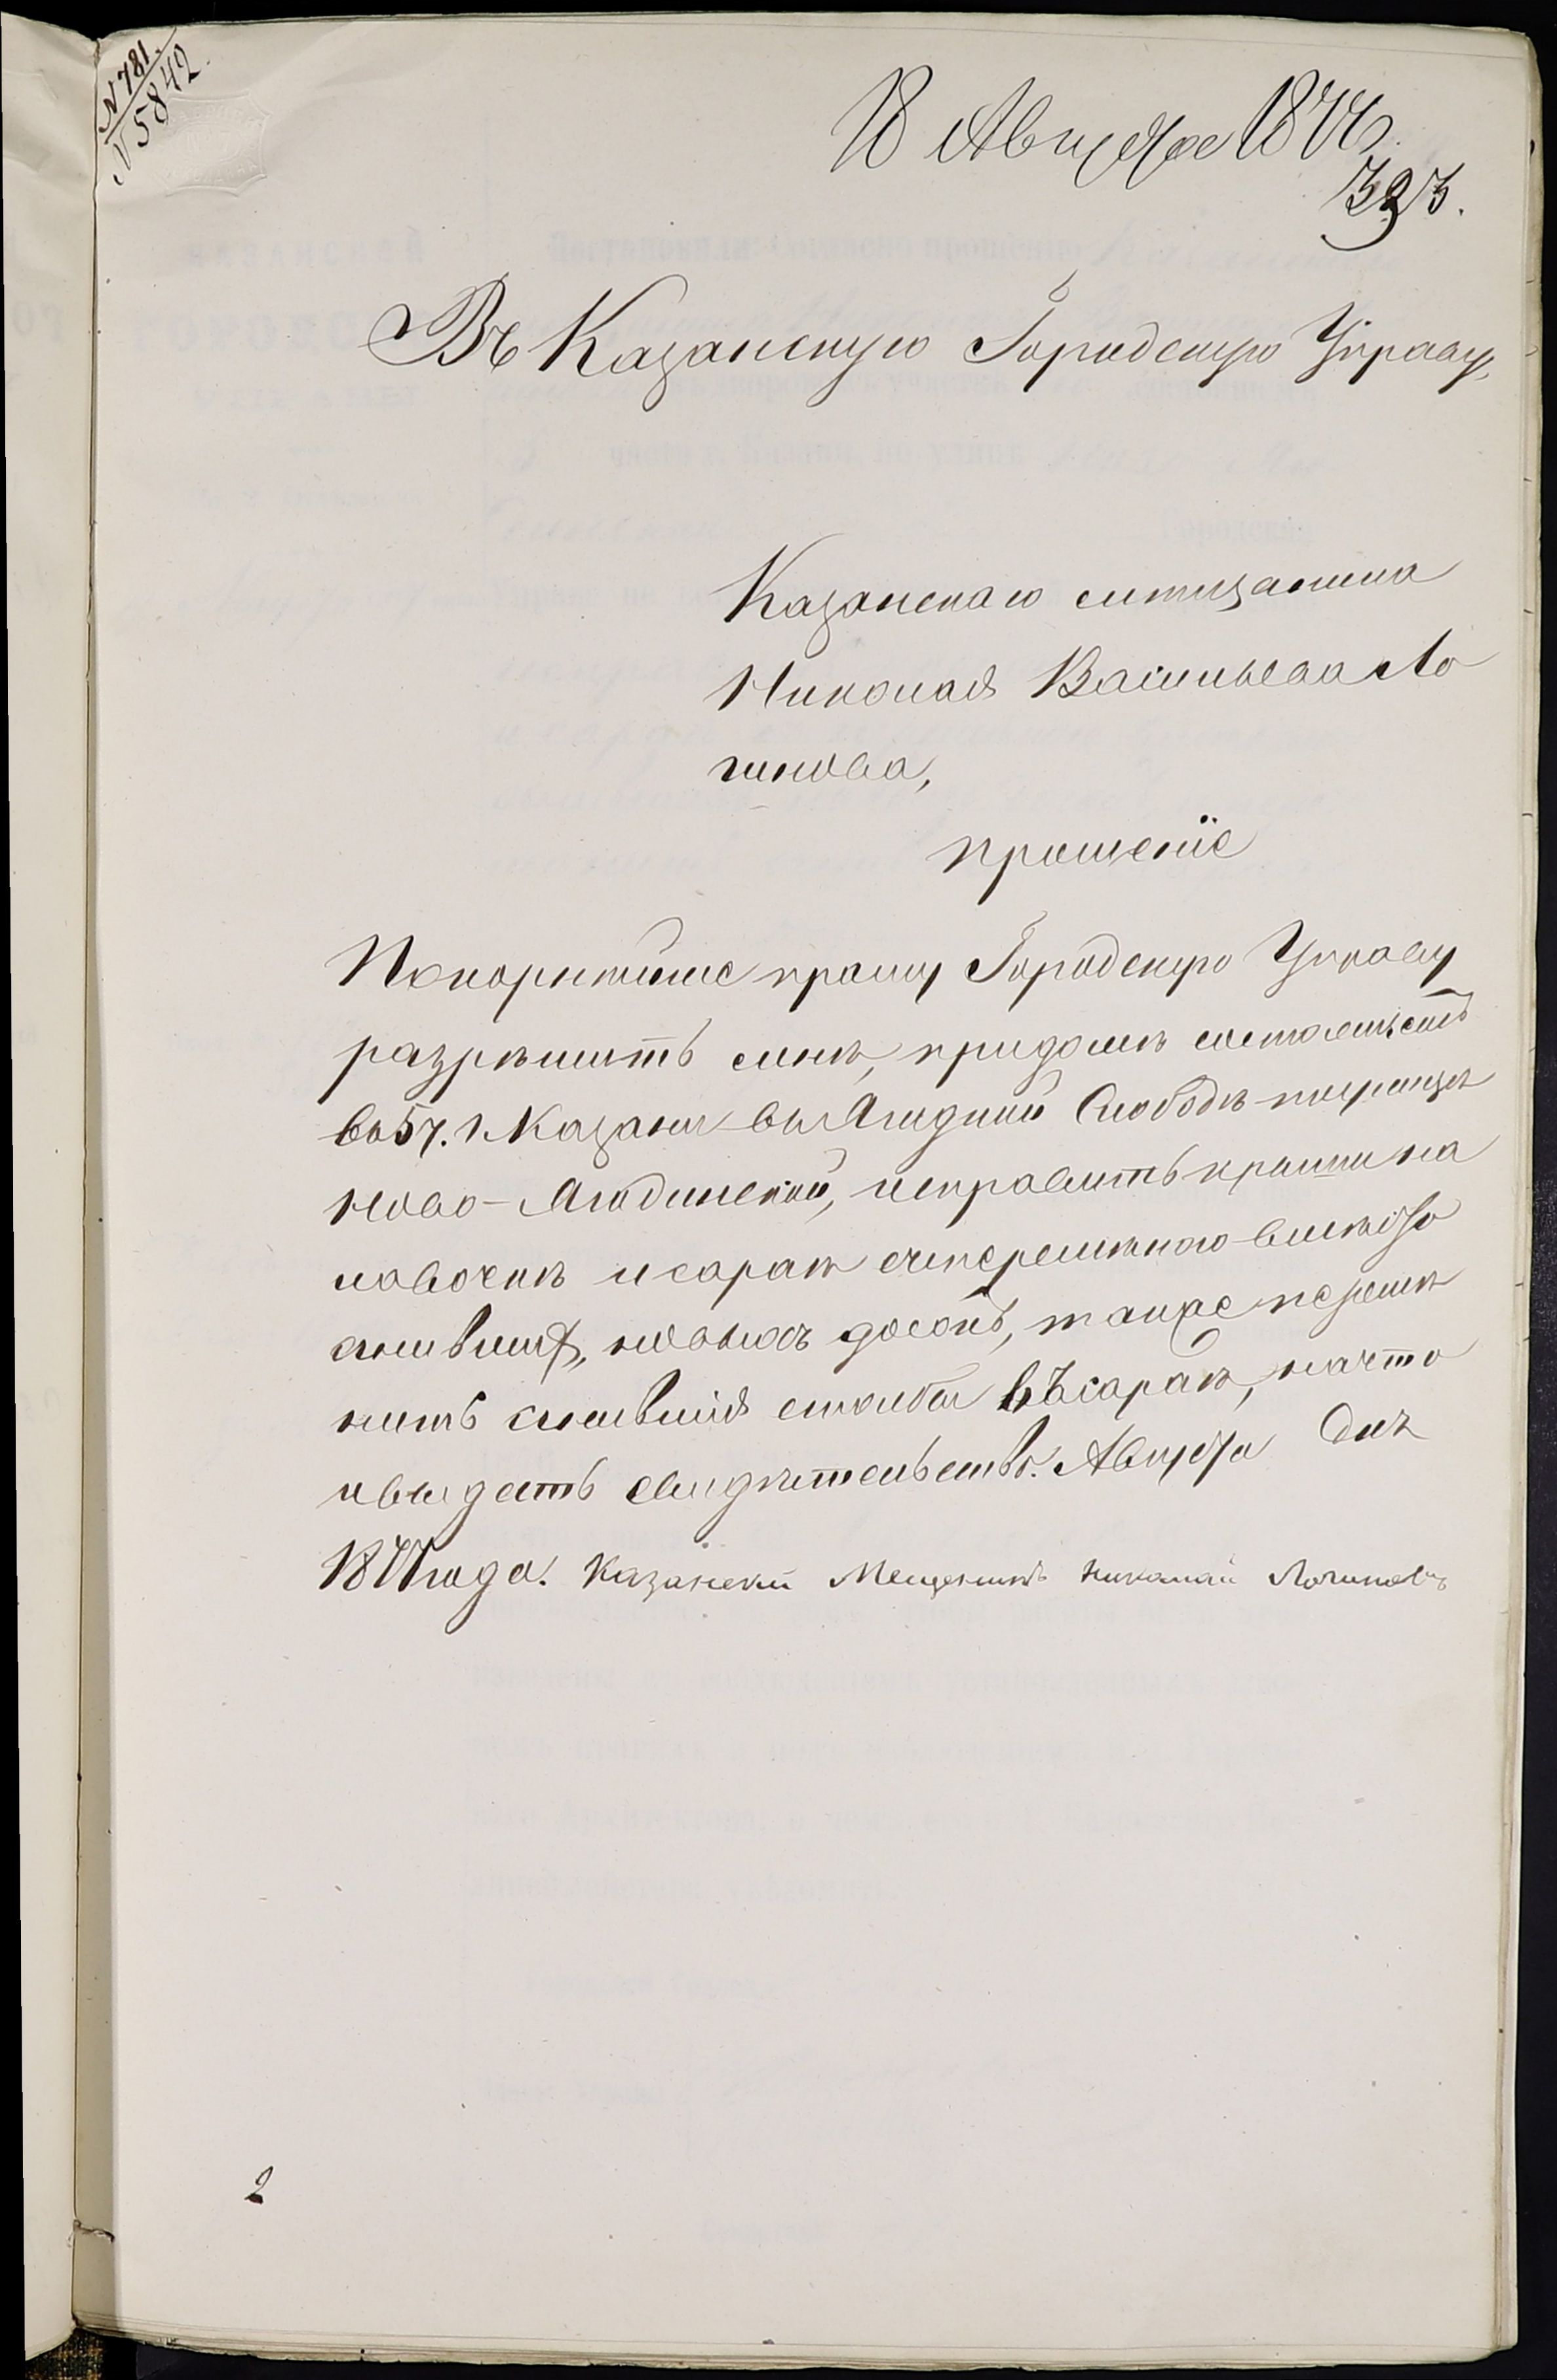 N 781.
N 5842.
18 Августа 1877
393.
Въ Казанскую Городскую Управу,
Казанскаго мещанина
Николая Васильева Ло
гинова,
прошеніе
Покорнейше прошу Городскую Управу
разрѣшить мнѣ, придомѣ
в 5 ч. г. Казани в Ягодной Слободѣ поулицѣ
Ново-Ягодинской, исправить крыши на
лавочкѣ и сараѣ
сгнившихъ, новыхъ досокъ, также перемѣ
нить сгнившія столбы въ сараѣ, начто
и выдать свидѣтельство. Августа дня
1877 года. Казанскій Мещенинъ Николай Логиновъ
2